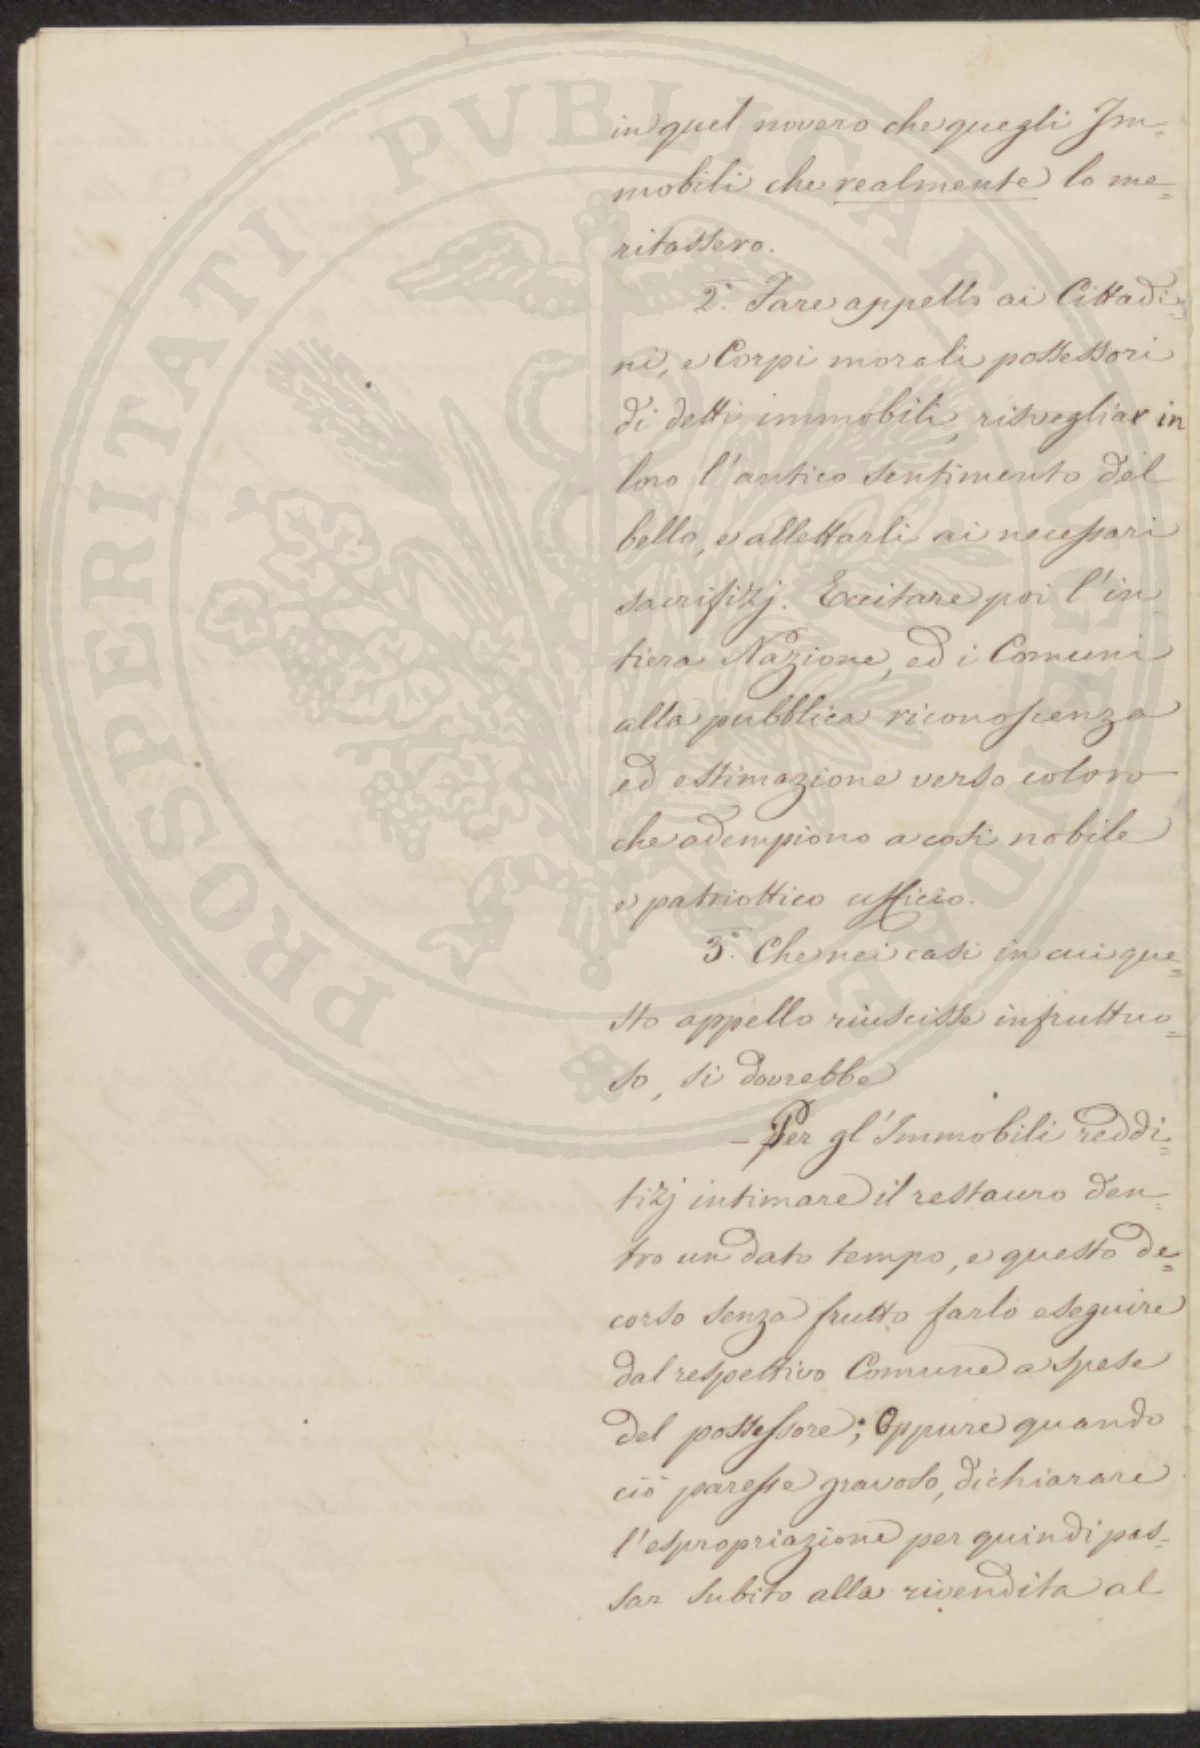 in quel novero che quegli Im=
mobili che realmente lo me=
ritassero.
2.° Fare appello ai Cittadi=
ni, e Corpi morali possessori
di detti immobili, risvegliar in
loro l'antico sentimento del
bello, e allettarli ai necessari
sacrifizj. Eccitare poi l'in
tiera Nazione, ed i Comuni
alla pubblica riconoscenza
ed estimazione verso coloro
che adempiono a così nobile
e patriottico ufficio.
3.° Che nei casi in cui que=
sto appello riuscisse infruttuo=
so, si dovrebbe
- Per gl'Immobili reddi=
tizj intimare il restauro den=
tro un dato tempo, e questo de=
corso senza frutto farlo eseguire
dal respettivo Comune a spese
del possessore; Oppure quando
ciò paresse gravoso, dichiarare
l'espropriazione per quindi pas=
sar subito alla rivendita al
PROSPERITATI PVBLICAE AVGENDAE